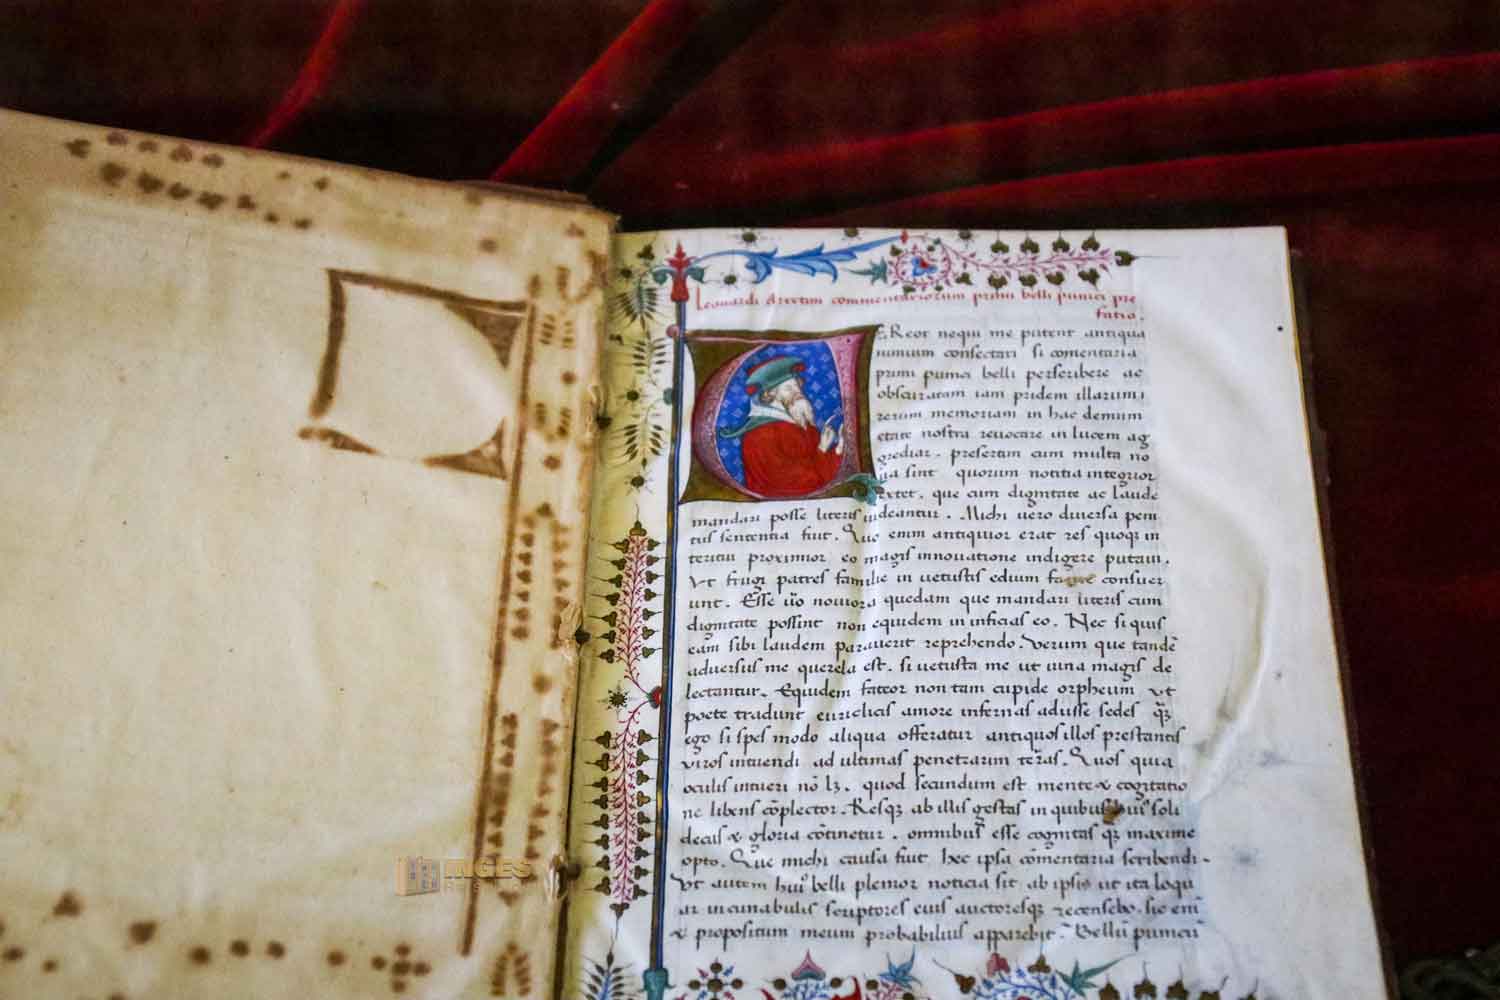 Leonardi Aretini commentariorum primi belli punici pre
fatio.
EReor nequi me putent antiqua
nimium consectari si comentaria
primi punici belli perscribere ac
obscuratam iam pridem illarum
rerum memoriam in hac demum
etate nostra reuocare in lucem ag
grediar. presertim cum multa no
ua sint quorum notitia integrior
extet. que cum dignitate ac laude
mandari posse literis uideantur. Michi uero diuersa peni
tus sententia fuit. Quo enim antiquior erat res quoque in
teritui proximior. eo magis innouatione indigere putaui.
Vt frugi patres familie in uetustis edium facere consuer
unt. Esse u͞o nouiora quedam que mandari literis cum
dignitate possint non equidem in inficias eo. Nec si quis
eam sibi laudem parauerit reprehendo. Verum que tande͞
aduersus me querela est. si uetusta me ut uina magis de
lectantur. Equidem fateor non tam cupide orpheum ut
poete tradunt euridicis amore infernas adiisse sedes q̃
ego si spes modo aliqua offeratur antiquos illos prestantis
viros intuendi ad ultimas penetrarim ter͞as. Quos quia
oculis intueri no͞ lꝫ. quod secundum est mente & cogitatio
ne libens co͞plector. Resqꝫ ab illis gestas in quibus soli
decus & gloria co͞tinetur. omnibus esse cognitas qꝫ maxime
opto. Que michi causa fuit hec ipsa co͞mentaria scribendi.
Vt autem huius belli plenior noticia sit ab ipsis ut ita loqu
ar incunabulis scriptores eius auctoresqꝫ recensebo. sic eni͞
& propositum meum probabilius apparebit. Bellu͞ punicu͞
INGES